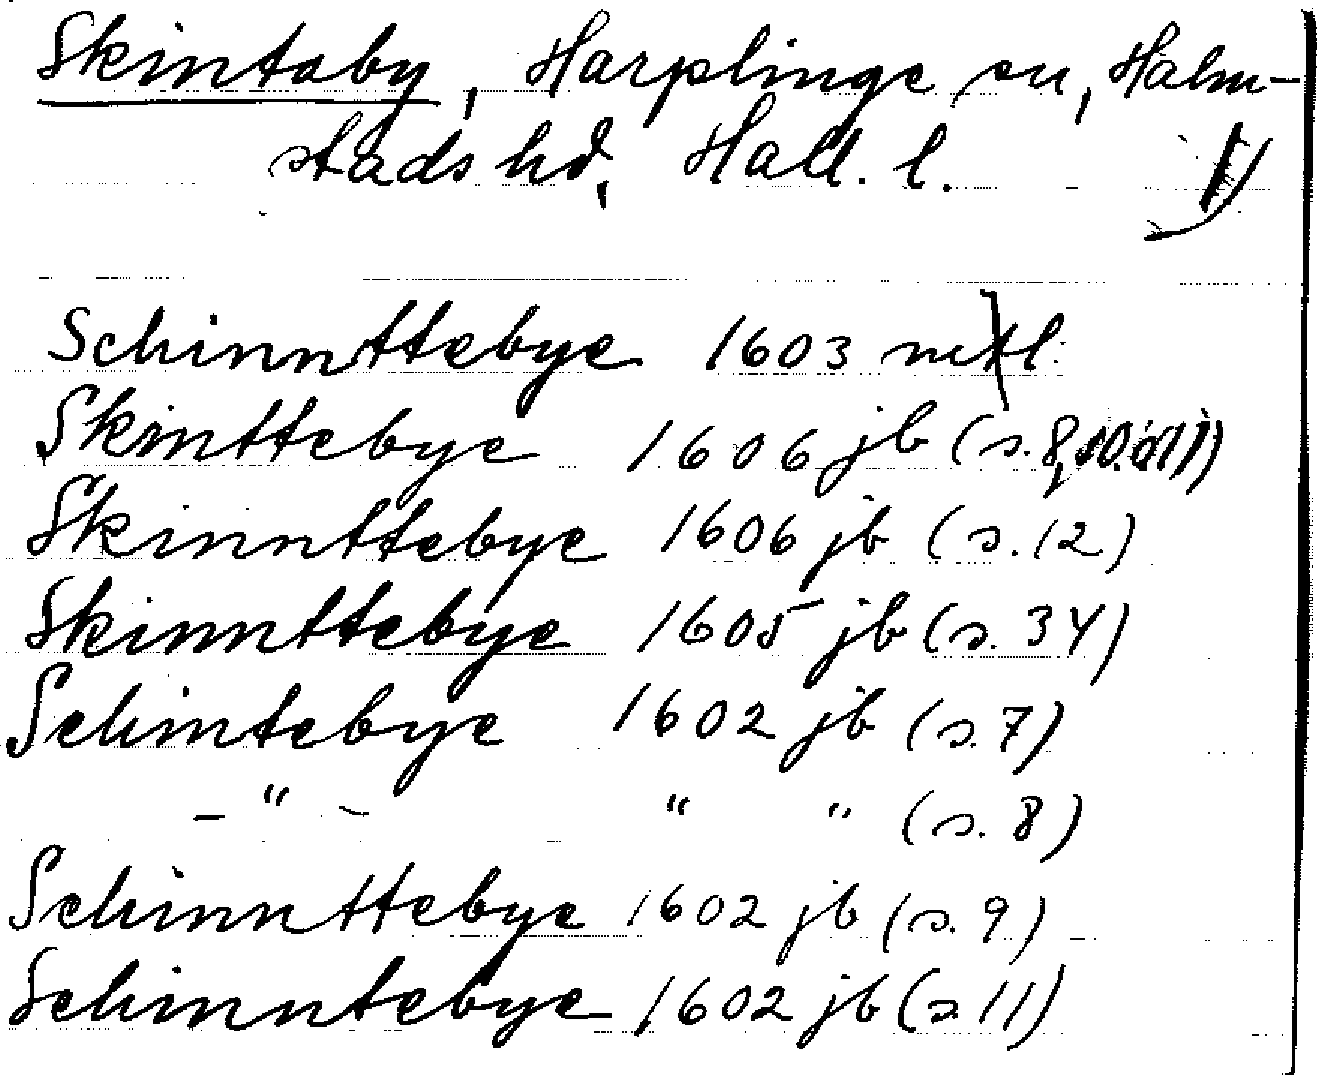 Skintaby, Harplinge sn, Halm-
stads hd, Hall. l. 1)
Schinnttebye 1603 mtl.
Skinttebye 1606 jb (s. 8, 10, 11)
Skinnttebye 1606 jb (s. 12)
Skinnttebye 1605 jb (s. 34)
Schintebye 1602 jb (s. 7)
– " – " " (s. 8)
Schinnttebye 1602 jb (s. 9)
Schinntebye 1602 jb (s 11)